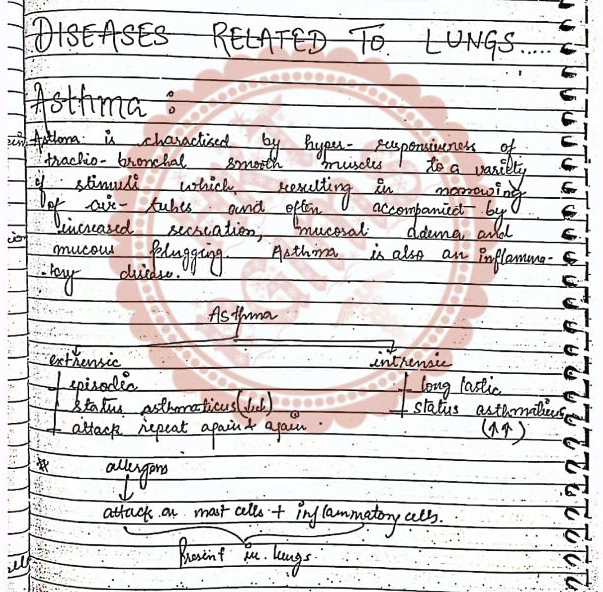 DISEASES RELATED TO LUNGS.....
Asthma :
Asthma is charactised by hyper- responsiveness of
trachio-bronchal smooth muscles to a variety
of stimuli which, resulting in narrowing
of air-tubes and often accompanied by
increased secreation, mucosal odema, and
mucous plugging. Asthma is also an inflamma-
-tory disease.
Asthma
extrensic intrensic
episodic long lastic
status asthmaticus (↓↓) status asthmaticus
attack repeat again & again (↑↑)
* allergens
↓
attack on mast cells + inflammatory cells.
Present in lungs